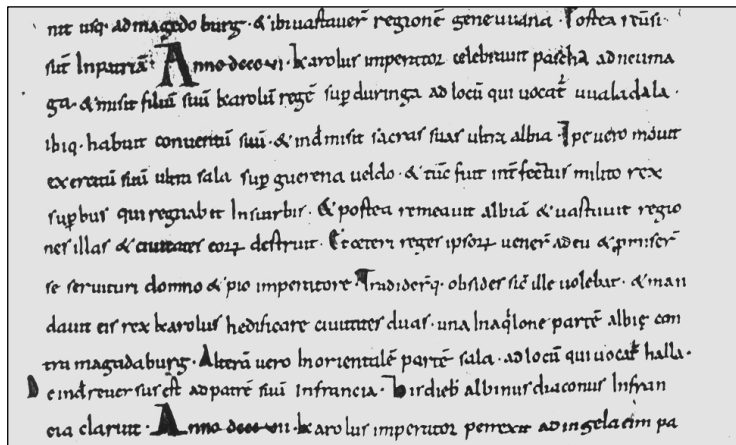 nit usq; ad magedoburg · & ibi uastauer̅ regione̅ genewana · Postea reuersi
sut̅ In patria̅ · Anno dcccvi · karolus imperator celebrauit pascha ad neuma
ga · & misit filiu̅ suu̅ karolu̅ rege̅ sup̅ duringa ad locu̅ qui uocat̅ uualadala ·
ibiq · habuit conuentu̅ suu̅ · & ind̅ misit scaras suas ultra albia · Ipe uero mouit
exercitu̅ suu̅ ultra sala sup̅ guerena ueldo · & tu̅c fuit int̅fectus milito rex
sup̅bus qui regnabat In surbis · & postea remeauit albia̅ & uastauit regio
nes illas & ciuitates eoꝝ destruit · Et ceteri reges ipsoꝝ uener̅ ad eu & p̅miser̅
se seruituri domno & pio imperatore · Tradider̅q · obsides sic̅ ille uolebat · & man
dauit eis rex karolus hedificare ciuitates duas · una In aq̅lone parte̅ albię con
tra magadaburg · Altera̅ uero In orientale̅ parte̅ sala · ad locu̅ qui uocat̅ halla ·
Deind̅ reuersus est ad patre̅ suu̅ In francia · His dieb̅ albinus diaconus In fran
cia claruit · Anno dcccvii · karolus imperator perrexit ad ingelaeim pa